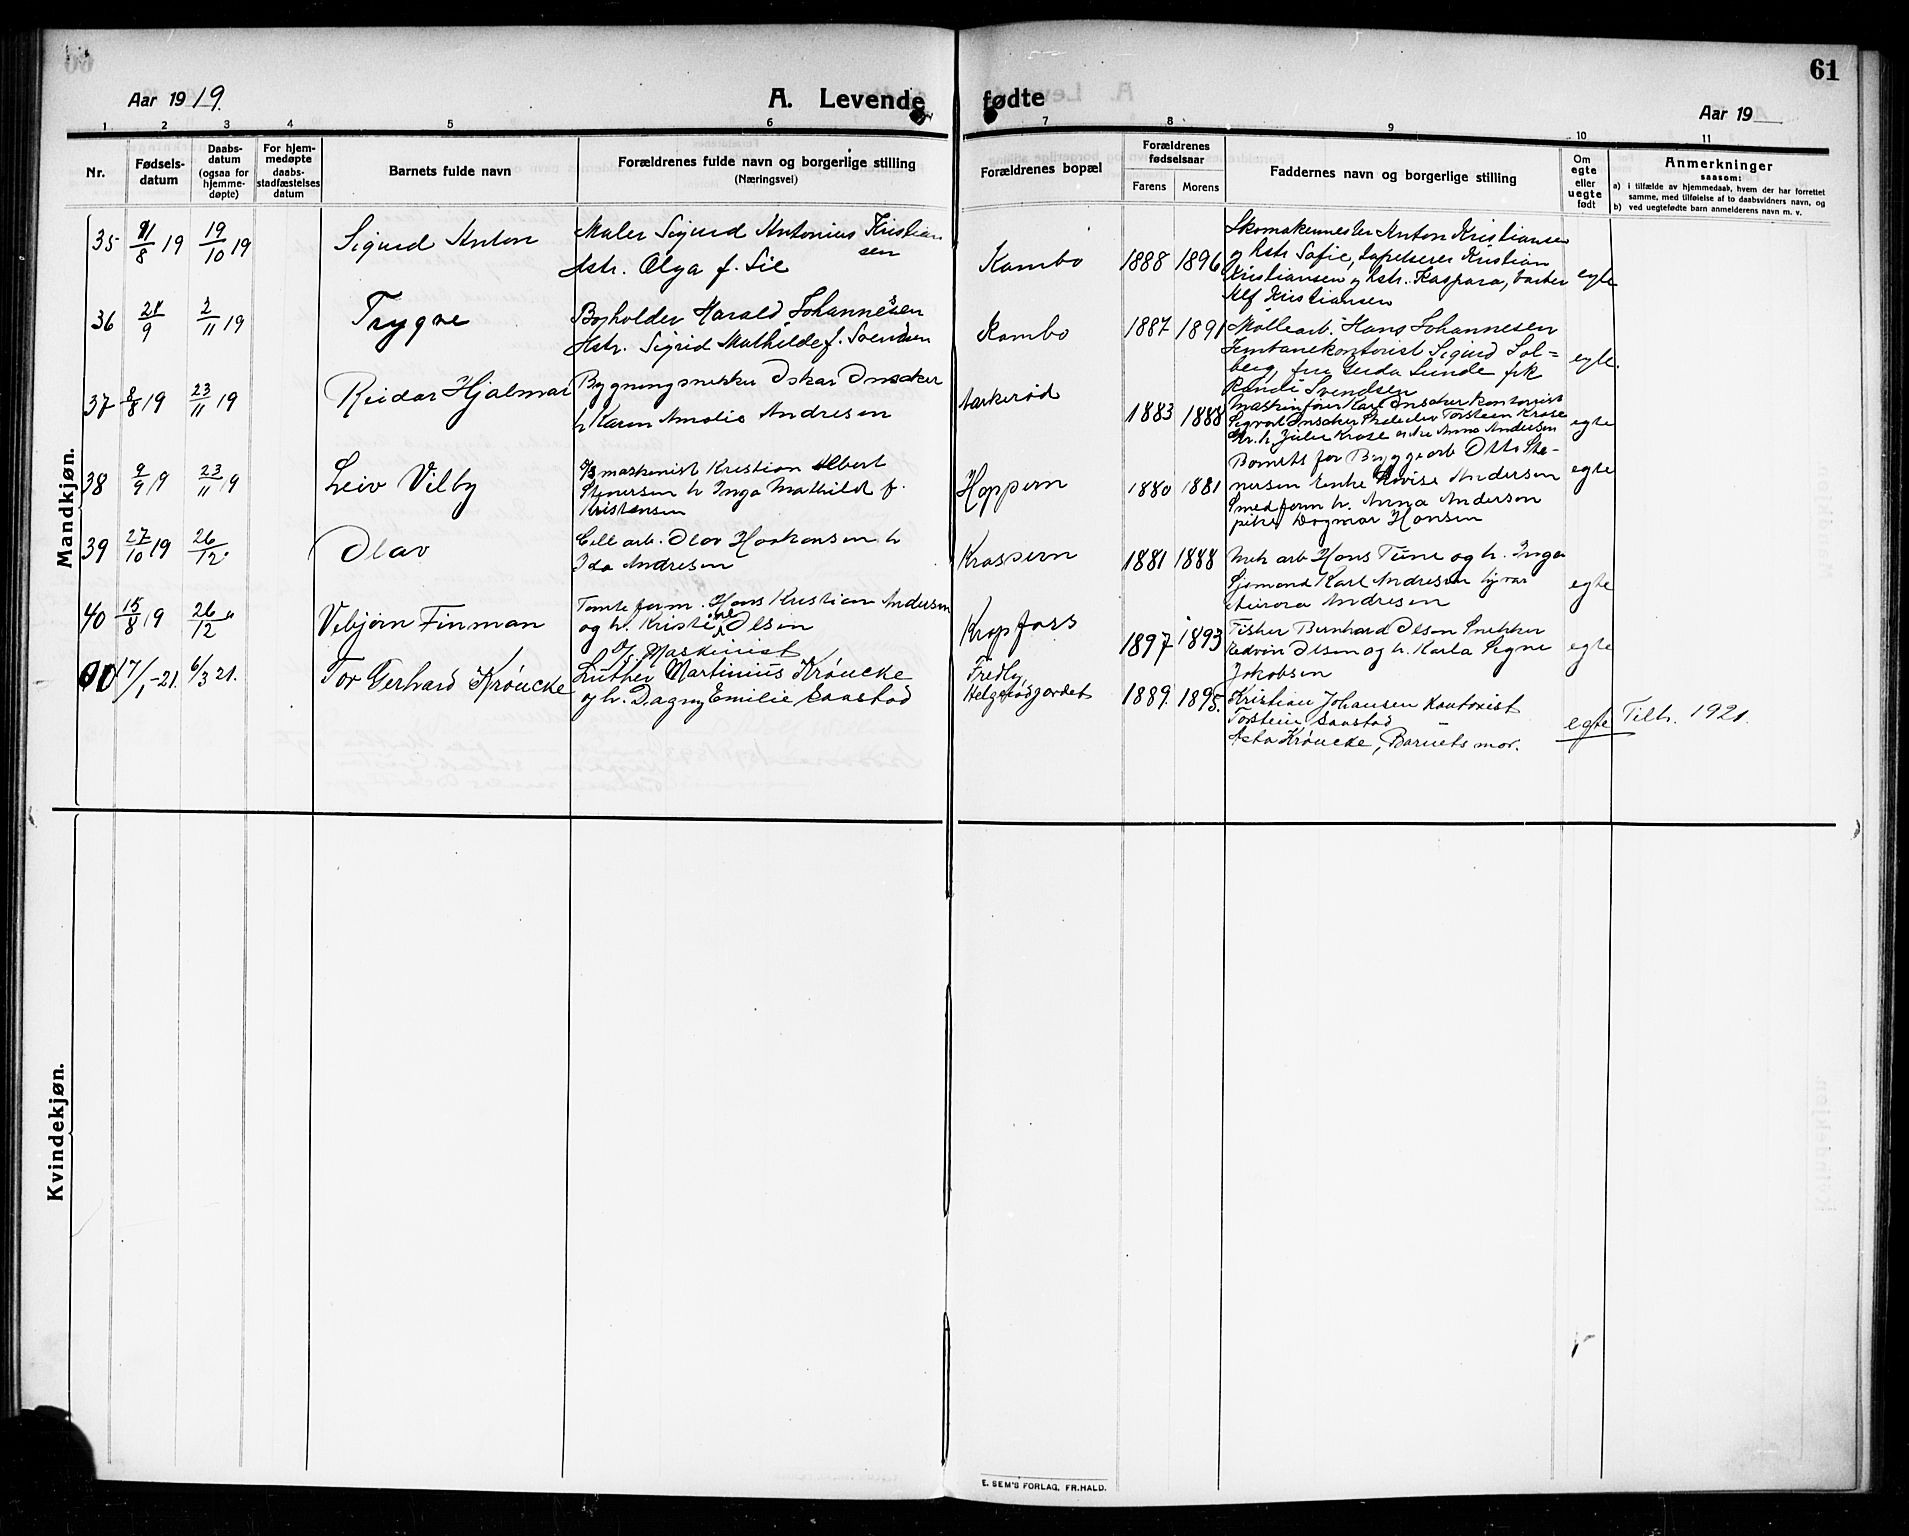 61
Aar 1919.
A. Levende fødte
Aar 19
1 2 3 4 5 6 7 8 9 10 11
Nr.
Fødsels-
datum
Daabs-
datum
(ogsaa for
hjemme-
døpte)
For hjem-
medøpte
daabs-
stadfæstelses
datum
Barnets fulde navn
Forældrenes fulde navn og borgerlige stilling
(Næringsvei)
Forældrenes bopæl
Forældrenes
fødselsaar
Farens Morens
Faddernes navn og borgerlige stilling
Om
egte
eller
uegte
født
Anmerkninger
saasom:
a) i tilfælde av hjemmedaab, hvem der har forrettet
samme, med tilføielse af to daabsvidners navn, og
b) ved uegtefødte barn anmelderens navn m. v.
Mandkjøn.
35 11/8 19 19/10 19 Sigurd Anton
Maler Sigurd Antonius Kristian
sen
Hstr. Olga f. Lie
Kambo 1888 1896
Skomakermester Anton Kristiansen
og hstr Sofie, tapetserer Kristian
Kristiansen og hstr. Kaspara, barber
Alf Kristiansen
egte
36 21/9 2/11 19 Trygve
Harald Johannessen
Hstr. Sigrid Mathilde f. Svendsen
Kambo 1887 1891
Møllearb. Hans Johannesen
Sigurd Sol=
berg, fru Gerda Sunde frk
Randi Svendsen
egte.
37 8/8 19 23/11 19 Reidar Hjalmar
Bygningsnekker Oskar
h Karen Amalie Andresen
1883 1888
Maskinfører Karl kontorist
Torstein
Anna Andersen
egte
38 9/9 19 23/11 19 Leiv Vilby
maskenist Kristian Albert
Stenersen h Inga Mathilde f.
Kristensen
Hoppern 1880 1881
Barnets far Byggearb Otto Ste-
nersen Enke Lovise Andersen
Smedform h. Anna Anderson
pike Dagmar Hansen
egte
39 27/10 19 26/12 Olav
Cell arb. Olav Haakonsen h
Ida Andresen
Krossern 1881 1888
Mek arb Hans Tune og h. Inga
Sjømand Karl Andresen
Aurora Andresen
egte
40 15/8 19 26/12 Vebjørn Finman
Tomteform. Hans Kristian Andersen
og h. Kristine Olsen
Kropfoss 1897 1893
Fisker Bernhard Olsen Snekker
Edvin Olsen og h. Karla Signe
Jakobsen
egte
17/1-21. 6/3 21. Tor Gerhard Krøncke
Maskinist
Luther Martinius Krøncke
og h. Dagny Emilie Saastad
Fredly,
Helgerødgjordet 1889. 1895.
Kristian Johansen Kontorist
Torstein Saastad
Asta Krøncke, Barnets mor.
egte Tilh. 1921.
Kvindekjøn.
E. SEM'S FORLAG, FR.HALD.